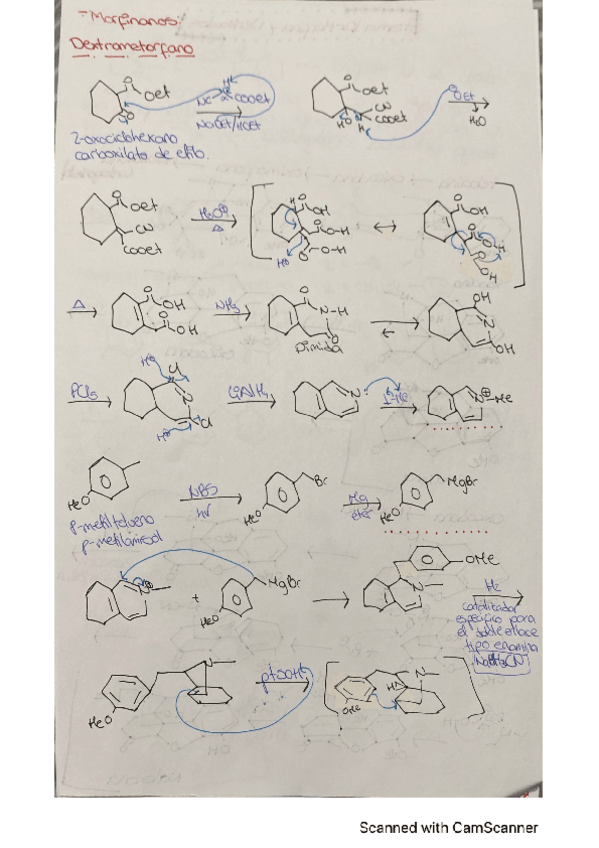 - Morfinanos:
Dextrometorfano
OEt
NC COOEt
NaOEt/HOEt
OEt
CN
COOEt
HO H
OEt
H2O
2-oxociclohexano
carboxilato de etilo.
OEt
CN
COOEt
H3O⊕
Δ
OH
O-H
O-H
HO
↔
OH
OH
Δ
OH
OH
NH3
N-H
Diimida
OH
N
OH
PCl5
Cl
N
Cl
LiAlH4
N
I-Me
N-Me
MeO
p-metiltolueno
p-metilanisol
NBS
hν
Br
MeO
Mg
éter
MgBr
MeO
N
+
MgBr
MeO
OMe
N
H2
catalizador
específico para
el doble enlace
tipo enamina
NaBH3CN
MeO
N
pTsOH
OMe
N
Scanned with CamScanner